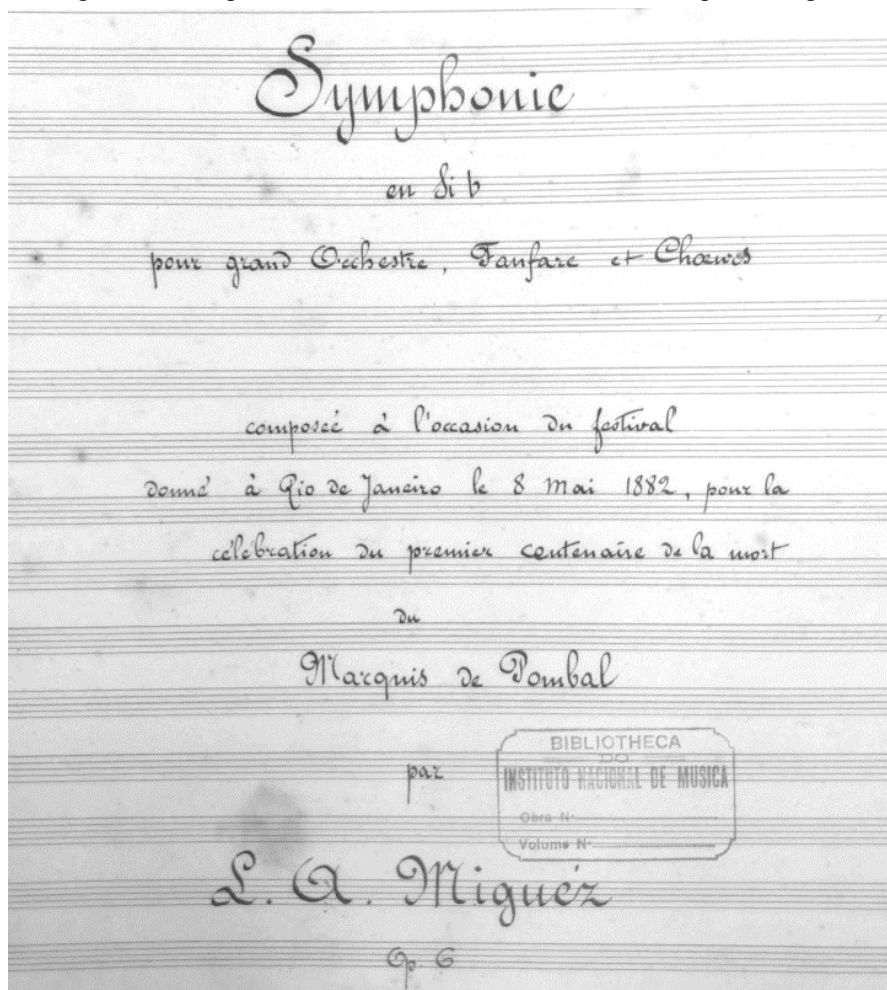 Symphonie
en Si b
pour grand Orchestre, Fanfare et Choeurs
composée à l'occasion du festival
donné à Rio de Janeiro le 8 Mai 1882, pour la
célébration du premier centenaire de la mort
du
Marquis de Pombal
par
BIBLIOTHECA
DO
INSTITUTO NACIONAL DE MUSICA
Obra N.
Volume N.
L. A. Miguéz
Op. 6